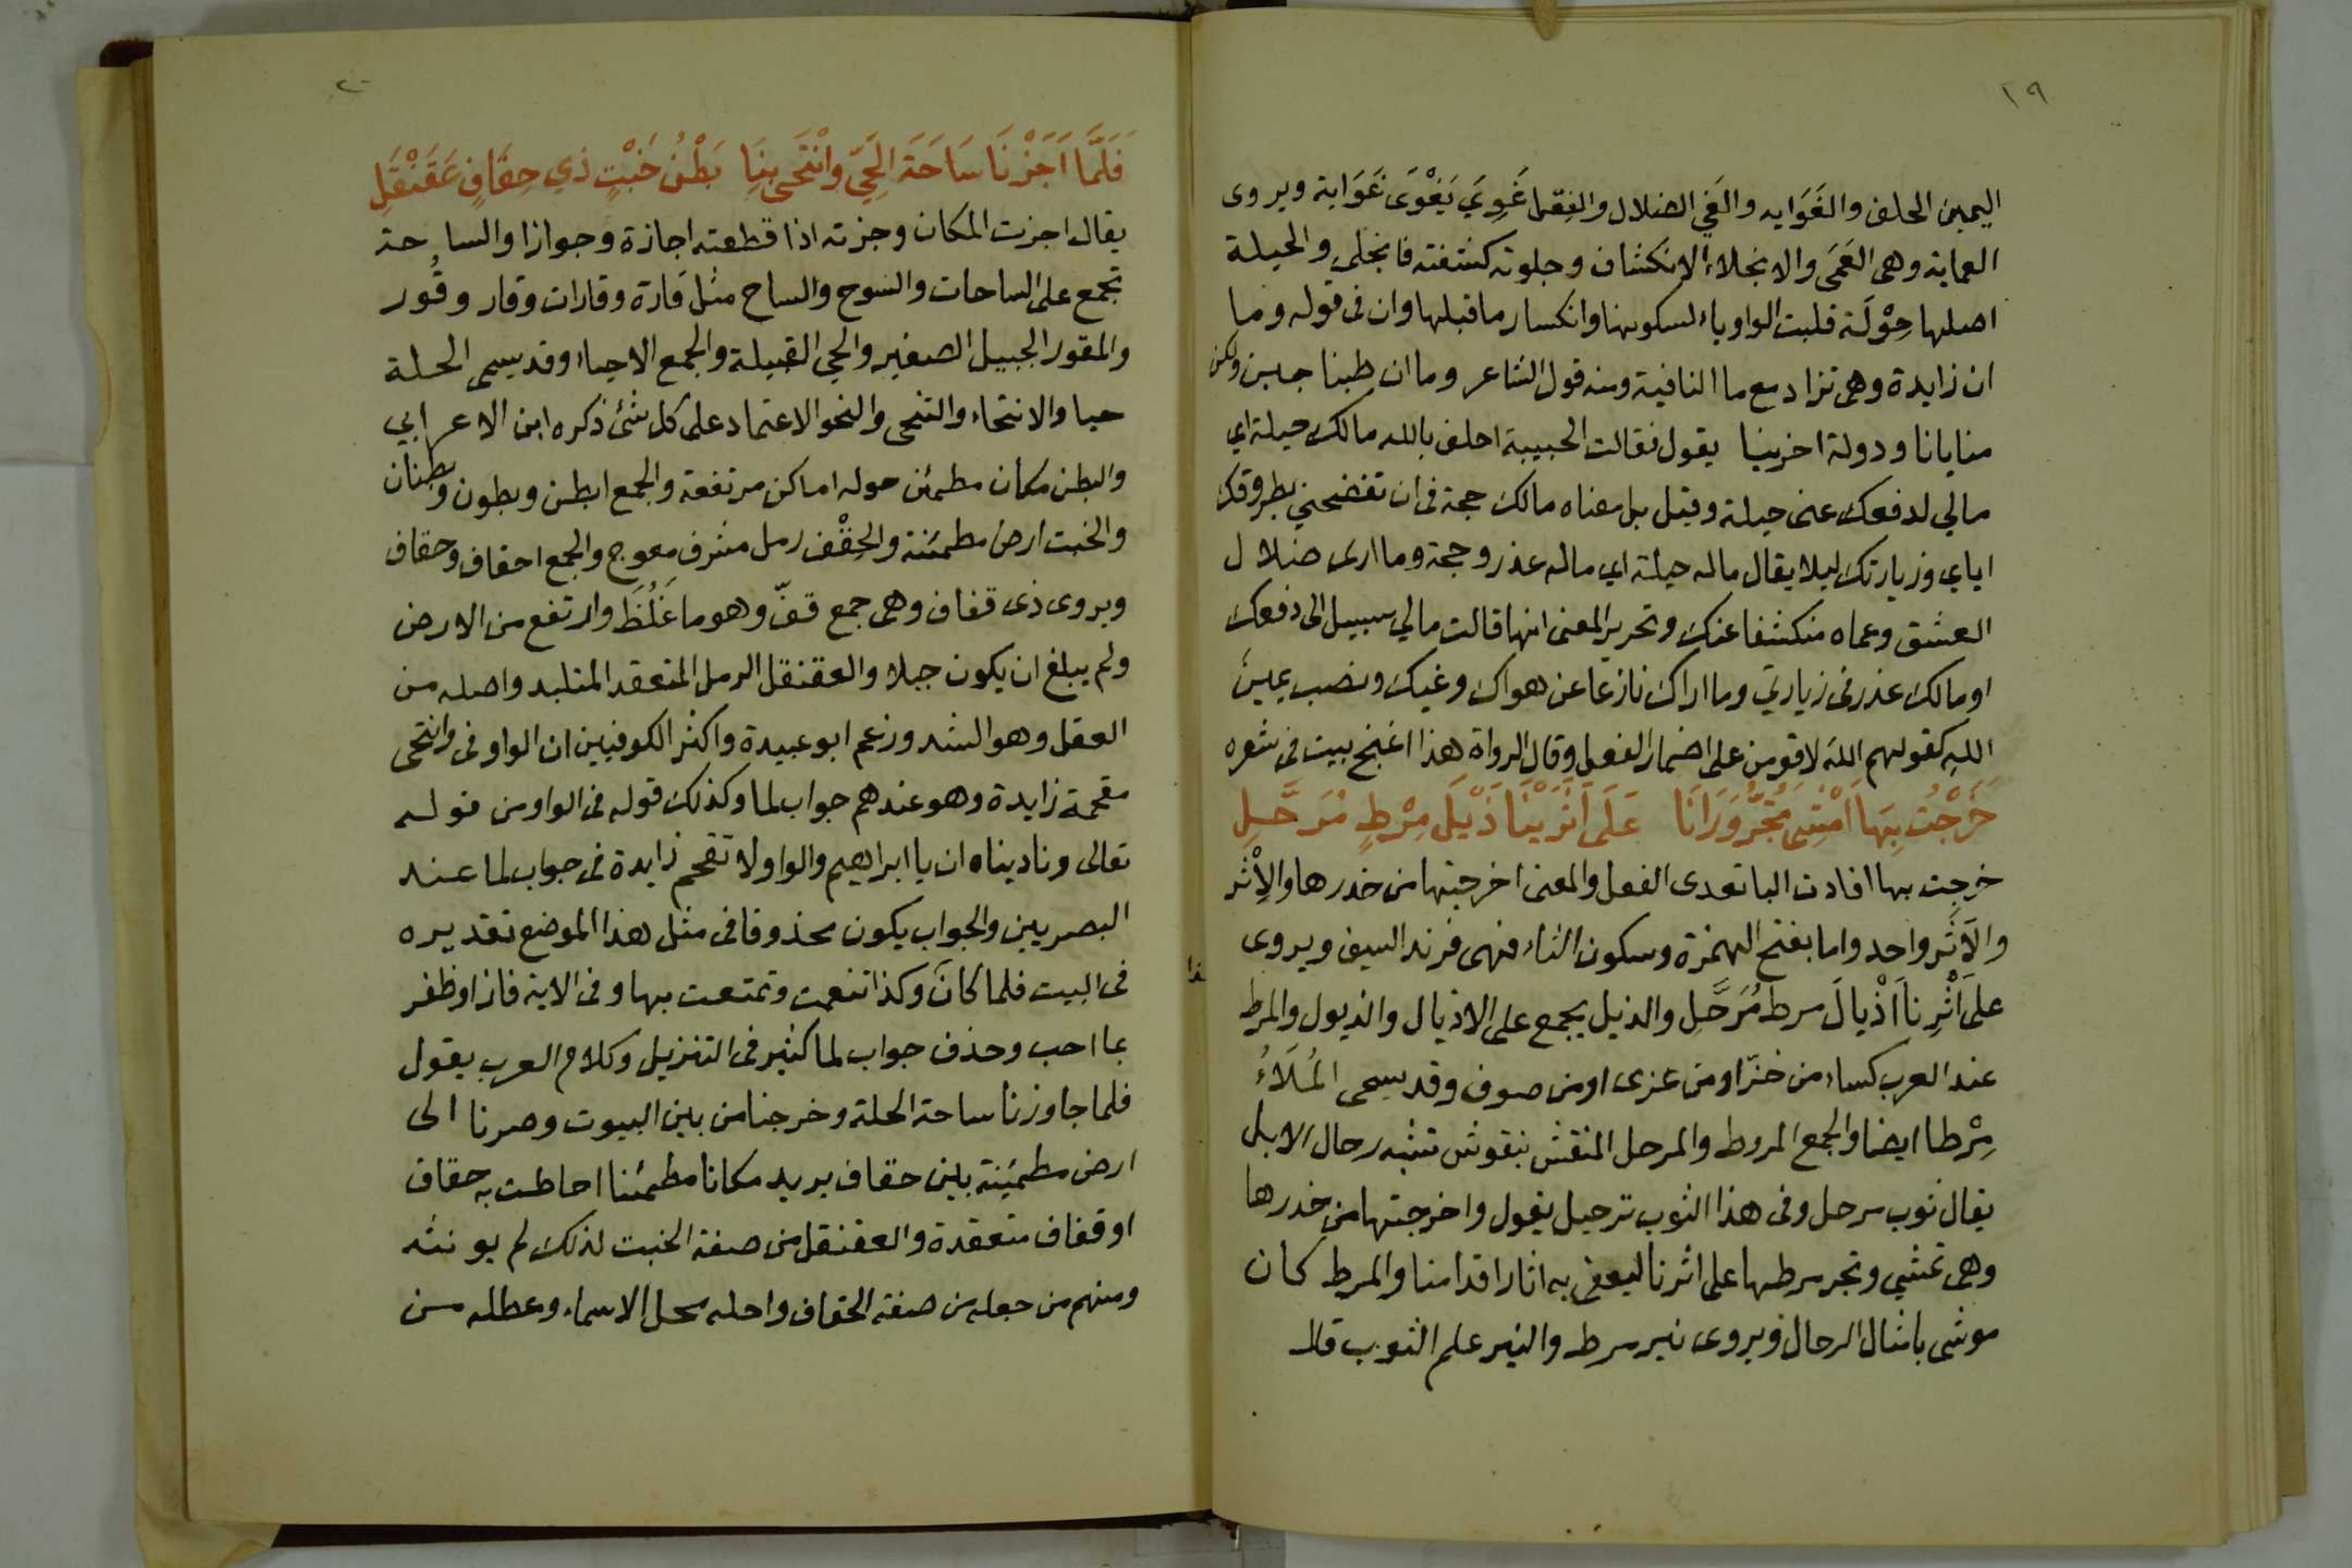 ٢٩
اليمين الحلف والغَوَايه والغَي الضلال والفِعْل غَوِيَ يَغْوَى غَوَاية ويروى
العماية وهى العَمَى والانجلاء الانكشاف وجلوته كشفته فانجلى والحيلة
اصلها حِوْلَة قلبت الواو ياء لسكونها وانكسار ما قبلها وان فى قوله وما
ان زايدة وهى تزاد مع ما النافية ومنه قول الشاعر وما ان طبنا جبن ولكن
منايانا ودولة اخرينا يقول فقالت الحبيبة احلف بالله مالك حيلة اي
مالي لدفعك عنى حيلة وقيل بل معناه مالك حجة فى ان تفضحني بطروقك
اياي وزيارتك ليلا يقال ماله حيلة اي ماله عذر وحجة وما ارى ضلال
العشق وعماه منكشفا عنك وتحرير المعنى انها قالت مالي سبيل الى دفعك
او مالك عذر فى زيارتي وما اراك نازعا عن هواك وغيك ونصب يمينَ
اللهِ كقولهم اللهَ لاقومن على اضمار الفعل وقال الرواة هذا اغنج بيت فى شعره
خَرَجْتُ بِهَا اَمْشِى تَجُرُّ وَرَانَا عَلَى اَثَرَيْنَا ذَيْلَ مِرْطٍ مُرَحَّلِ
خرجت بها افادت البا تعدى الفعل والمعنى اخرجتها من خدرها والاِثْر
والاَثَر واحد واما بفتح الهمزة وسكون الثاء فهى فرند السيف ويروى
على اَثْرِنا اَذْيالَ مرط مُرَحَّلِ والذيل يجمع على الاذيال والذيول والمرط
عند العرب كساء من خزّ او من عزى او من صوف وقد يسمى المُلَاءُ
مِرْطا ايضا والجمع المروط والمرحل المنقش بنقوش تشبه رحال الابل
يقال ثوب مرحل وفى هذا الثوب ترحيل يقول واخرجتها من خدرها
وهى تمشي وتجر مرطها على اثرنا ليعفى به اثار اقدامنا والمرط كان
موشى بامثال الرحال ويروى نير مرط والنير علم الثوب قال
فَلَمَّا اَجَزْنَا سَاحَةَ الحَيِّ وانْتَحَى بِنَا بَطْنُ خَبْتٍ ذي حِقَافٍ عَقَنْقَلِ
يقال اجزت المكان وجزته اذا قطعته اجازة وجوازا والساحة
تجمع على الساحات والسوح والساح مثل قارة وقارات وقار وقُور
والمقور الجبيل الصغير والحي القبيلة والجمع الاحياء وقد يسمى الحلة
حيا والانتحاء والتنحى والنحو الاعتماد على كل شئ ذكره ابن الاعرابي
والبطن مكان مطمئن حوله اماكن مرتفعة والجمع ابطن وبطون وبطنان
والخبت ارض مطمئنة والحِقْف رمل مشرف معوج والجمع احقاف وحقاف
ويروى ذى قفاف وهى جمع قفّ وهو ما غَلُظَ وارتفع من الارض
ولم يبلغ ان يكون جبلا والعقنقل الرمل المتعقد المتلبد واصله من
العقل وهو الشد وزعم ابو عبيدة واكثر الكوفيين ان الواو فى وانتحى
مقحمة زايدة وهو عندهم جواب لما وكذلك قوله فى الواو من قوله
تعالى وناديناه ان يا ابراهيم والواو لا تقحم زايدة فى جواب لما عند
البصريين والجواب يكون محذوفا فى مثل هذا الموضع تقديره
فى البيت فلما كان وكذا تنعمت وتمتعت بها وفى الاية فاز او ظفر
بما احب وحذف جواب لما كثير فى التنزيل وكلام العرب يقول
فلما جاوزنا ساحة الحلة وخرجنا من بين البيوت وصرنا الى
ارض مطمئنة بين حقاف يريد مكانا مطمئنا احاطت به حقاف
او قفاف متعقدة والعقنقل من صفة الخبت لذلك لم يونثه
ومنهم من جعله من صفة الحقاف واحله محل الاسماء وعطله من